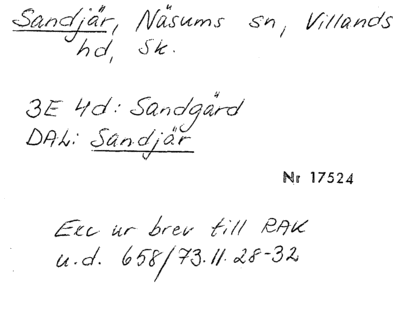 Sandjär, Näsums sn, Villands
hd, Sk.
3E 4d: Sandgård
DAL: Sandjär
Nr 17524
Exc ur brev till RAK
u.d. 658/73.11.28-32